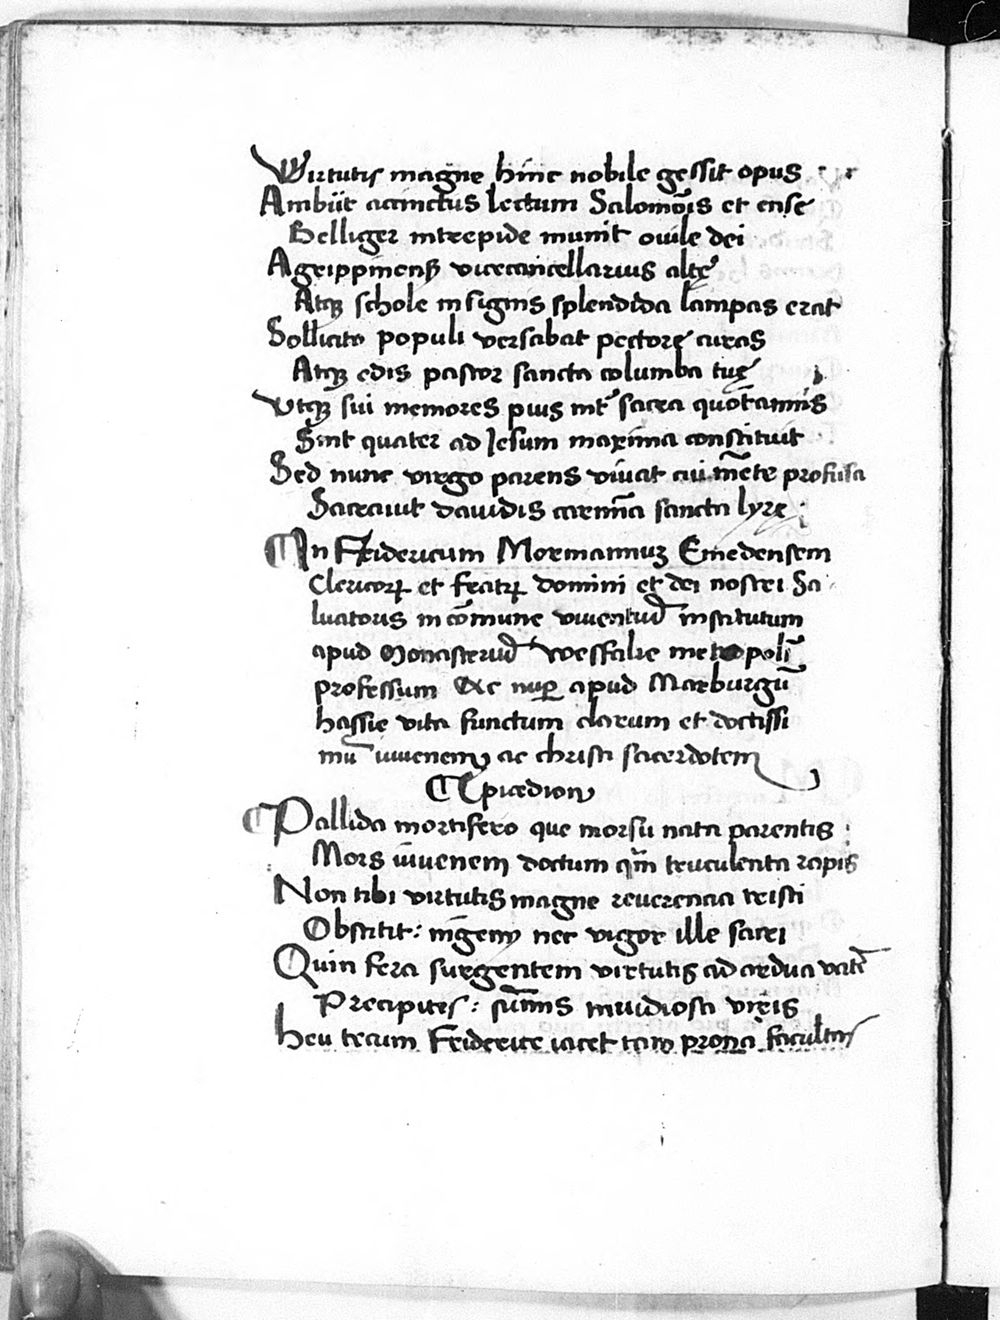 Virtutis magnę hinc nobile gessit opus
Ambiit accinctus lectum Salomõis et ense
Belliger intrepide muniit ouile dei
Agrippineñ vicecancellarius altę
Atq schole insignis splendida lampas erat
Sollicito populi versabat pectore curas
Atq ędis pastor sancta columba tuę
Vtq sui memores pius sacra quotannis
Sint quater ad Jesum maxima constituit
Sed nunc virgo parens viuat cui mẽte profusa
Sacrauit dauidis carmina sancta lyrę
In Fridericum Mormannuȝ Emedensem
clericoꝝ et fratꝝ domini et dei nostri Sa
luatoris in cõmune viuentiũ institutum
apud Monasteriũ westfalie metropoli
professum Ac nuꝑ apud Marburgũ
hassie vita functum clarum et doctissi
mũ iuuenem ac christi sacerdotem
Epicedion
Pallida mortifero que morsu nata parentis
Mors iuuenem doctum truculenta rapis
Non tibi virtutis magne reuerentia tristi
Obstitit: ingenij nec vigor ille sacri
Quin fera surgentem virtutis ad ardua vatẽ
Precipites: sũmis inuidiosa viris
heu tecum Friderice iacet prona facultas